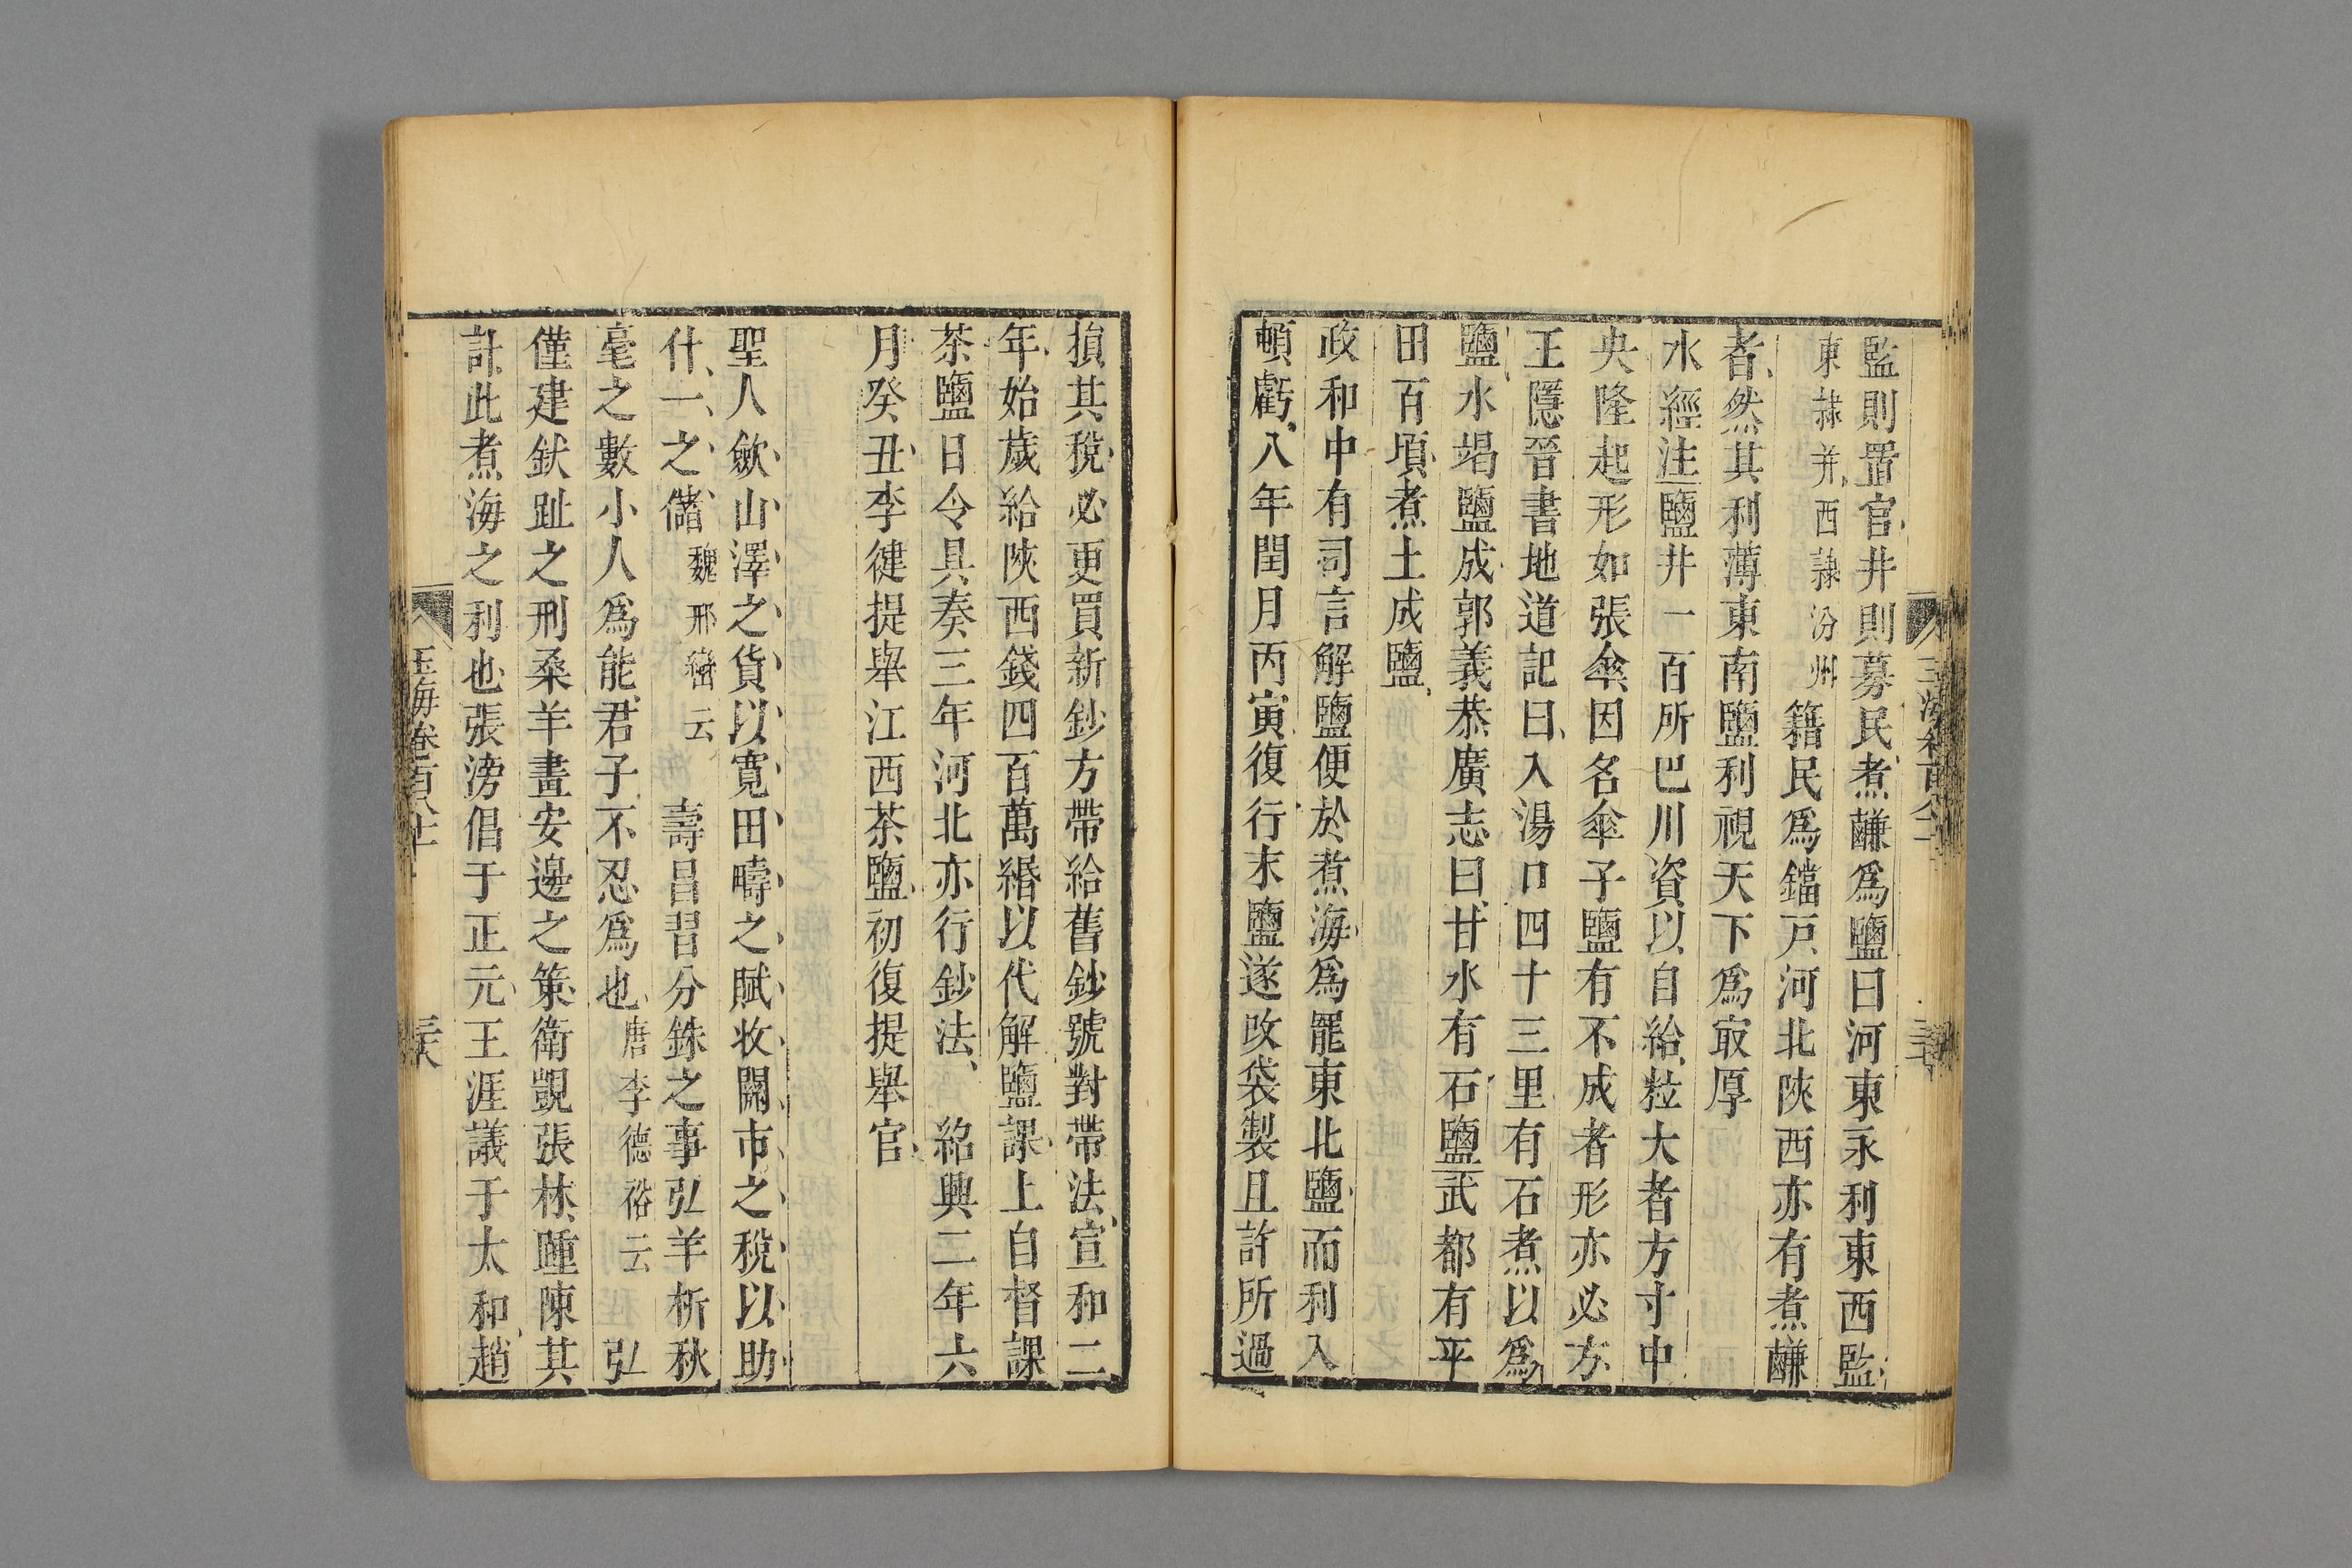 監則置官井則募民煮鹻爲鹽曰河東永利東西監
東隷并西隷汾州籍民爲鐺戸河北陝西亦有煮鹻
者然其利薄東南鹽利視天下爲㝡厚
水經注鹽井一百所巴川資以自給粒大者方寸中
央隆起形如張傘因名傘子鹽有不成者形亦必方
王隱晉書地道記曰入湯口四十三里有石煮以爲
鹽水竭鹽成郭義恭廣志曰甘水有石鹽武都有平
田百頃煮土成鹽
政和中有司言解鹽便於煮海爲罷東北鹽而利入
頓虧八年閏月丙寅復行末鹽遂改袋製且許所過
損其稅必更買新鈔方帶給舊鈔號對帶法宣和二
年始歲給陝西錢四百萬緡以代解鹽課上自督課
茶鹽日令具奏三年河北亦行鈔法紹興二年六
月癸丑李健提舉江西茶鹽初復提舉官
聖人斂山澤之貨以寛田疇之賦收關市之稅以助
什一之儲魏邢巒云壽昌習分銖之事弘羊析秋
毫之數小人爲能君子不忍爲也唐李德裕云弘
僅建釱趾之刑桑羊畫安邊之策衛覬張林踵陳其
計此煮海之利也張滂倡于正元王涯議于太和趙
玉海卷百八十一
三六